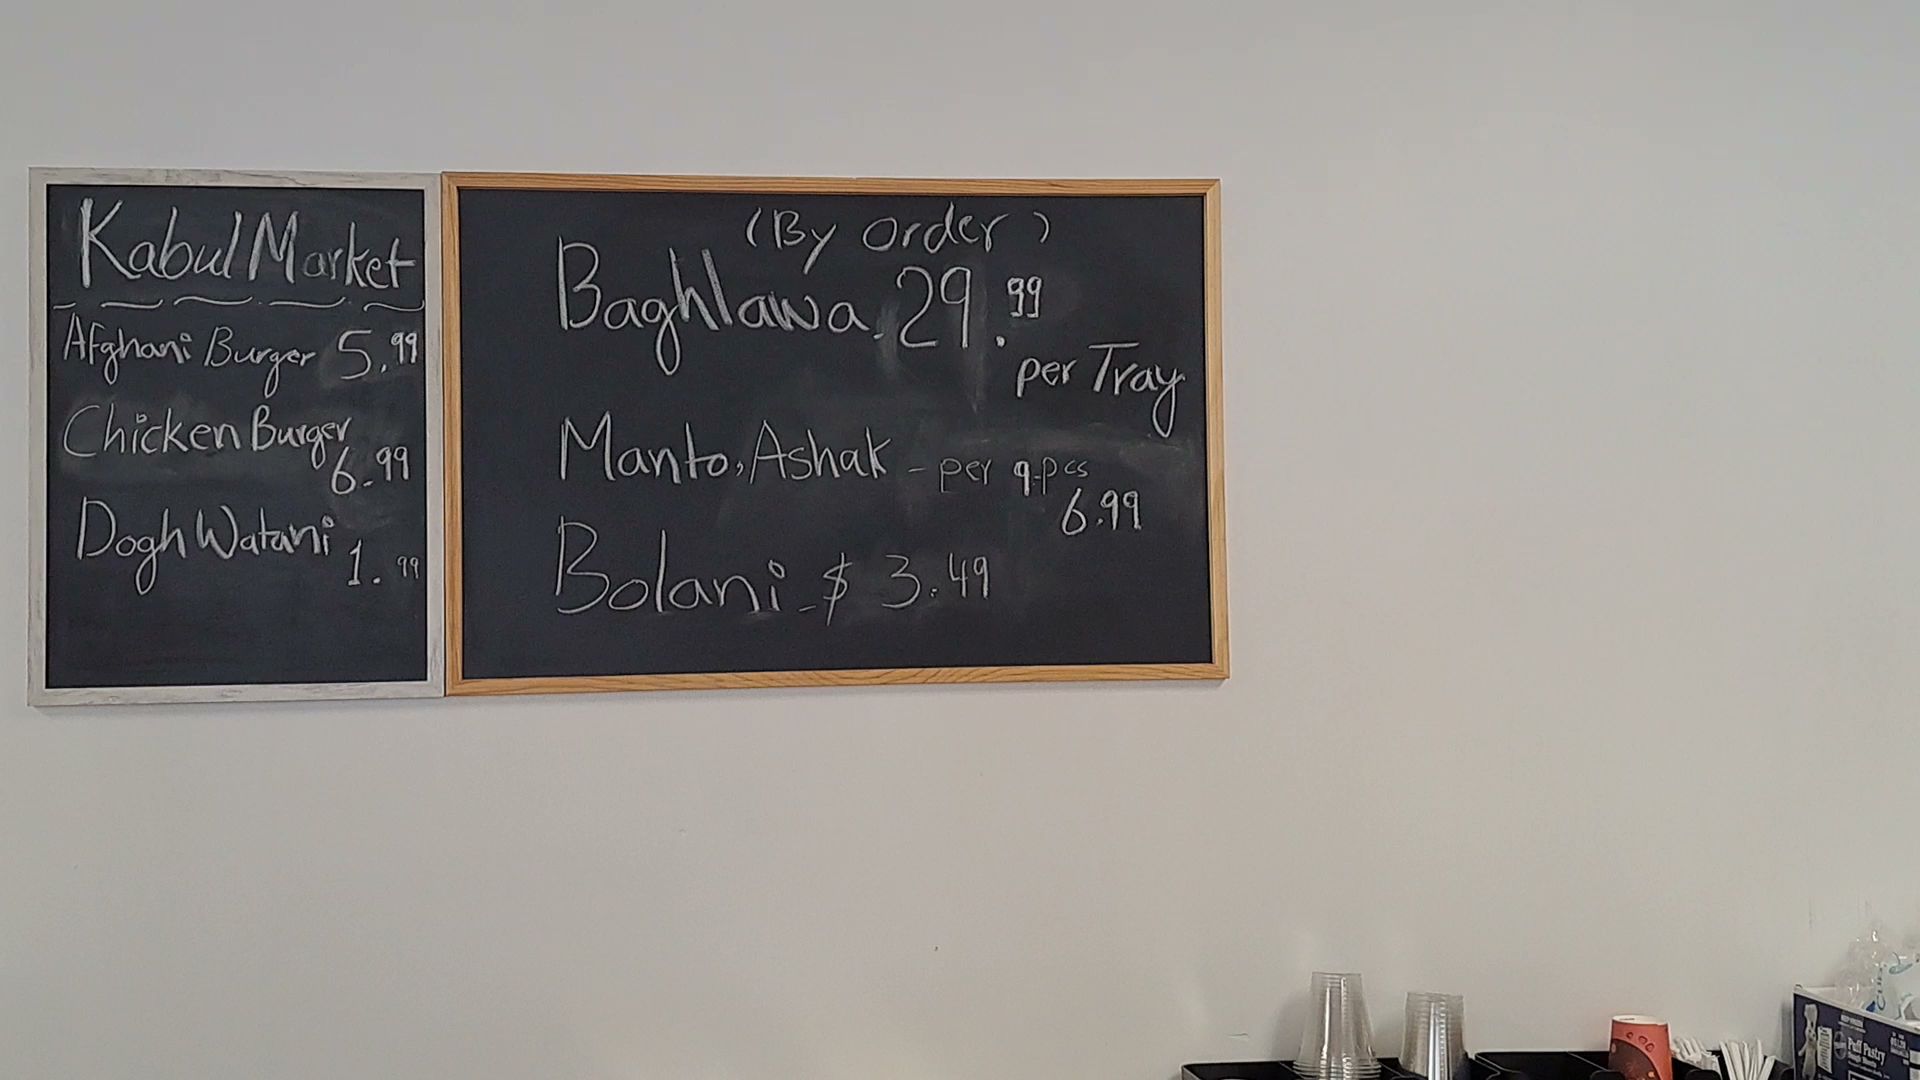 Kabul Market
Afghani Burger 5.99
Chicken Burger
6.99
Dogh Watani
1.99
(By order)
Baghlawa 29.99
per Tray
Manto, Ashak - per 9.pcs
6.99
Bolani - $ 3.49
Puff Pastry